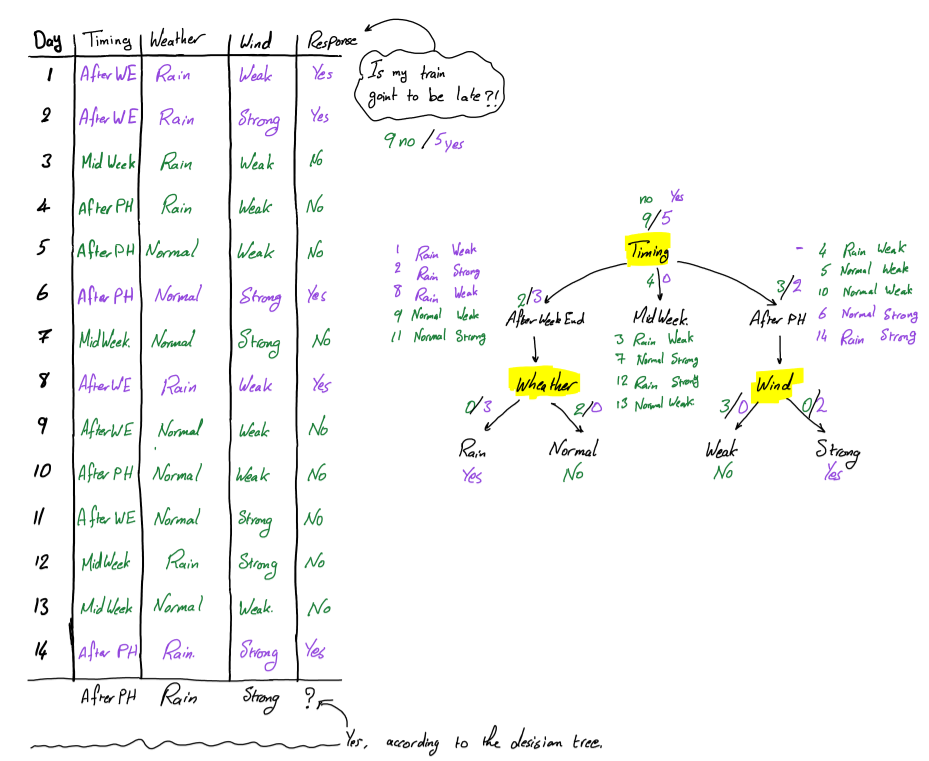 Day Timing Weather Wind Response
1 After WE Rain Weak Yes
2 After WE Rain Strong Yes
3 Mid Week Rain Weak No
4 After PH Rain Weak No
5 After PH Normal Weak No
6 After PH Normal Strong Yes
7 MidWeek. Normal Strong No
8 After WE Rain Weak Yes
9 After WE Normal Weak No
10 After PH Normal Weak No
11 After WE Normal Strong No
12 MidWeek Rain Strong No
13 MidWeek Normal Weak. No
14 After PH Rain. Strong Yes
After PH Rain Strong ?
Yes, according to the desisian tree.
Is my train
goint to be late?!
9 no / 5 yes
no Yes
9/5
Timing
1 Rain Weak
2 Rain Strong
8 Rain Weak
9 Normal Weak
11 Normal Strong
2/3
After Week End
4 0
MidWeek.
3 Rain Weak
7 Normal Strong
12 Rain Strong
13 Normal Weak
- 4 Rain Weak
5 Normal Weak
10 Normal Weak
6 Normal Strong
14 Rain Strong
3/2
After PH
Wheather
0/3 2/0
Rain Normal
Yes No
Wind
3/0 0/2
Weak Strong
No Yes